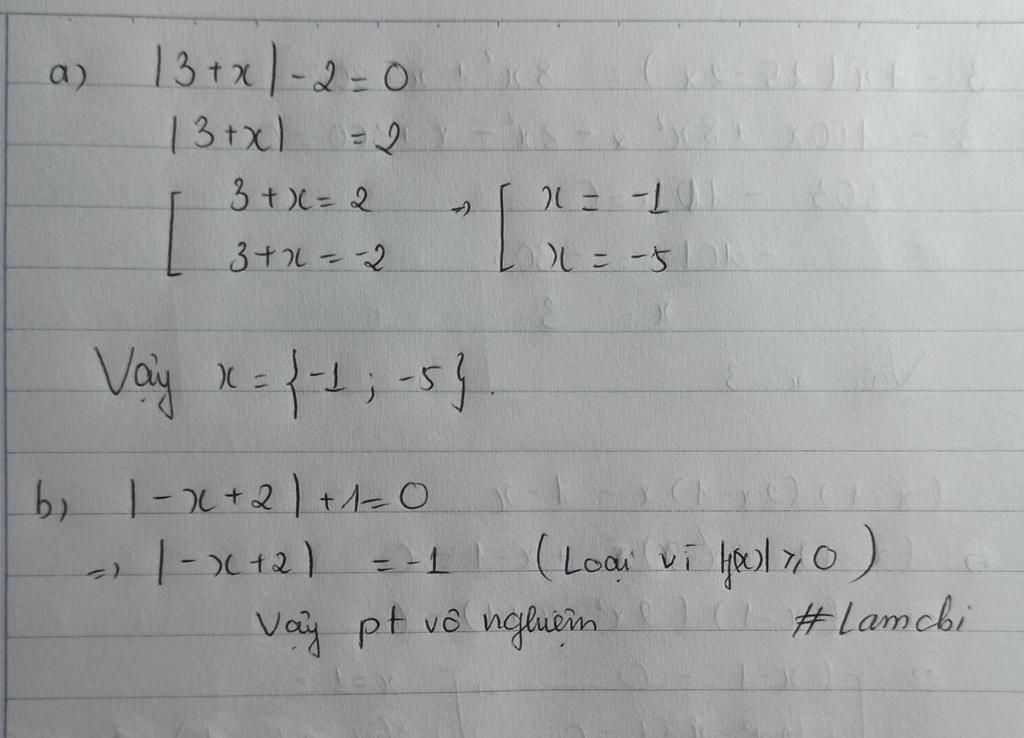 a) |3+x| - 2 = 0
|3+x| = 2
[ 3+x = 2 → [ x = -1
3+x = -2 x = -5
Vậy x = {-1 ; -5}.
b) |-x+2| + 1 = 0
=> |-x+2| = -1 (Loại vì |f(x)| ≥ 0)
Vậy pt vô nghiệm #Lamchi